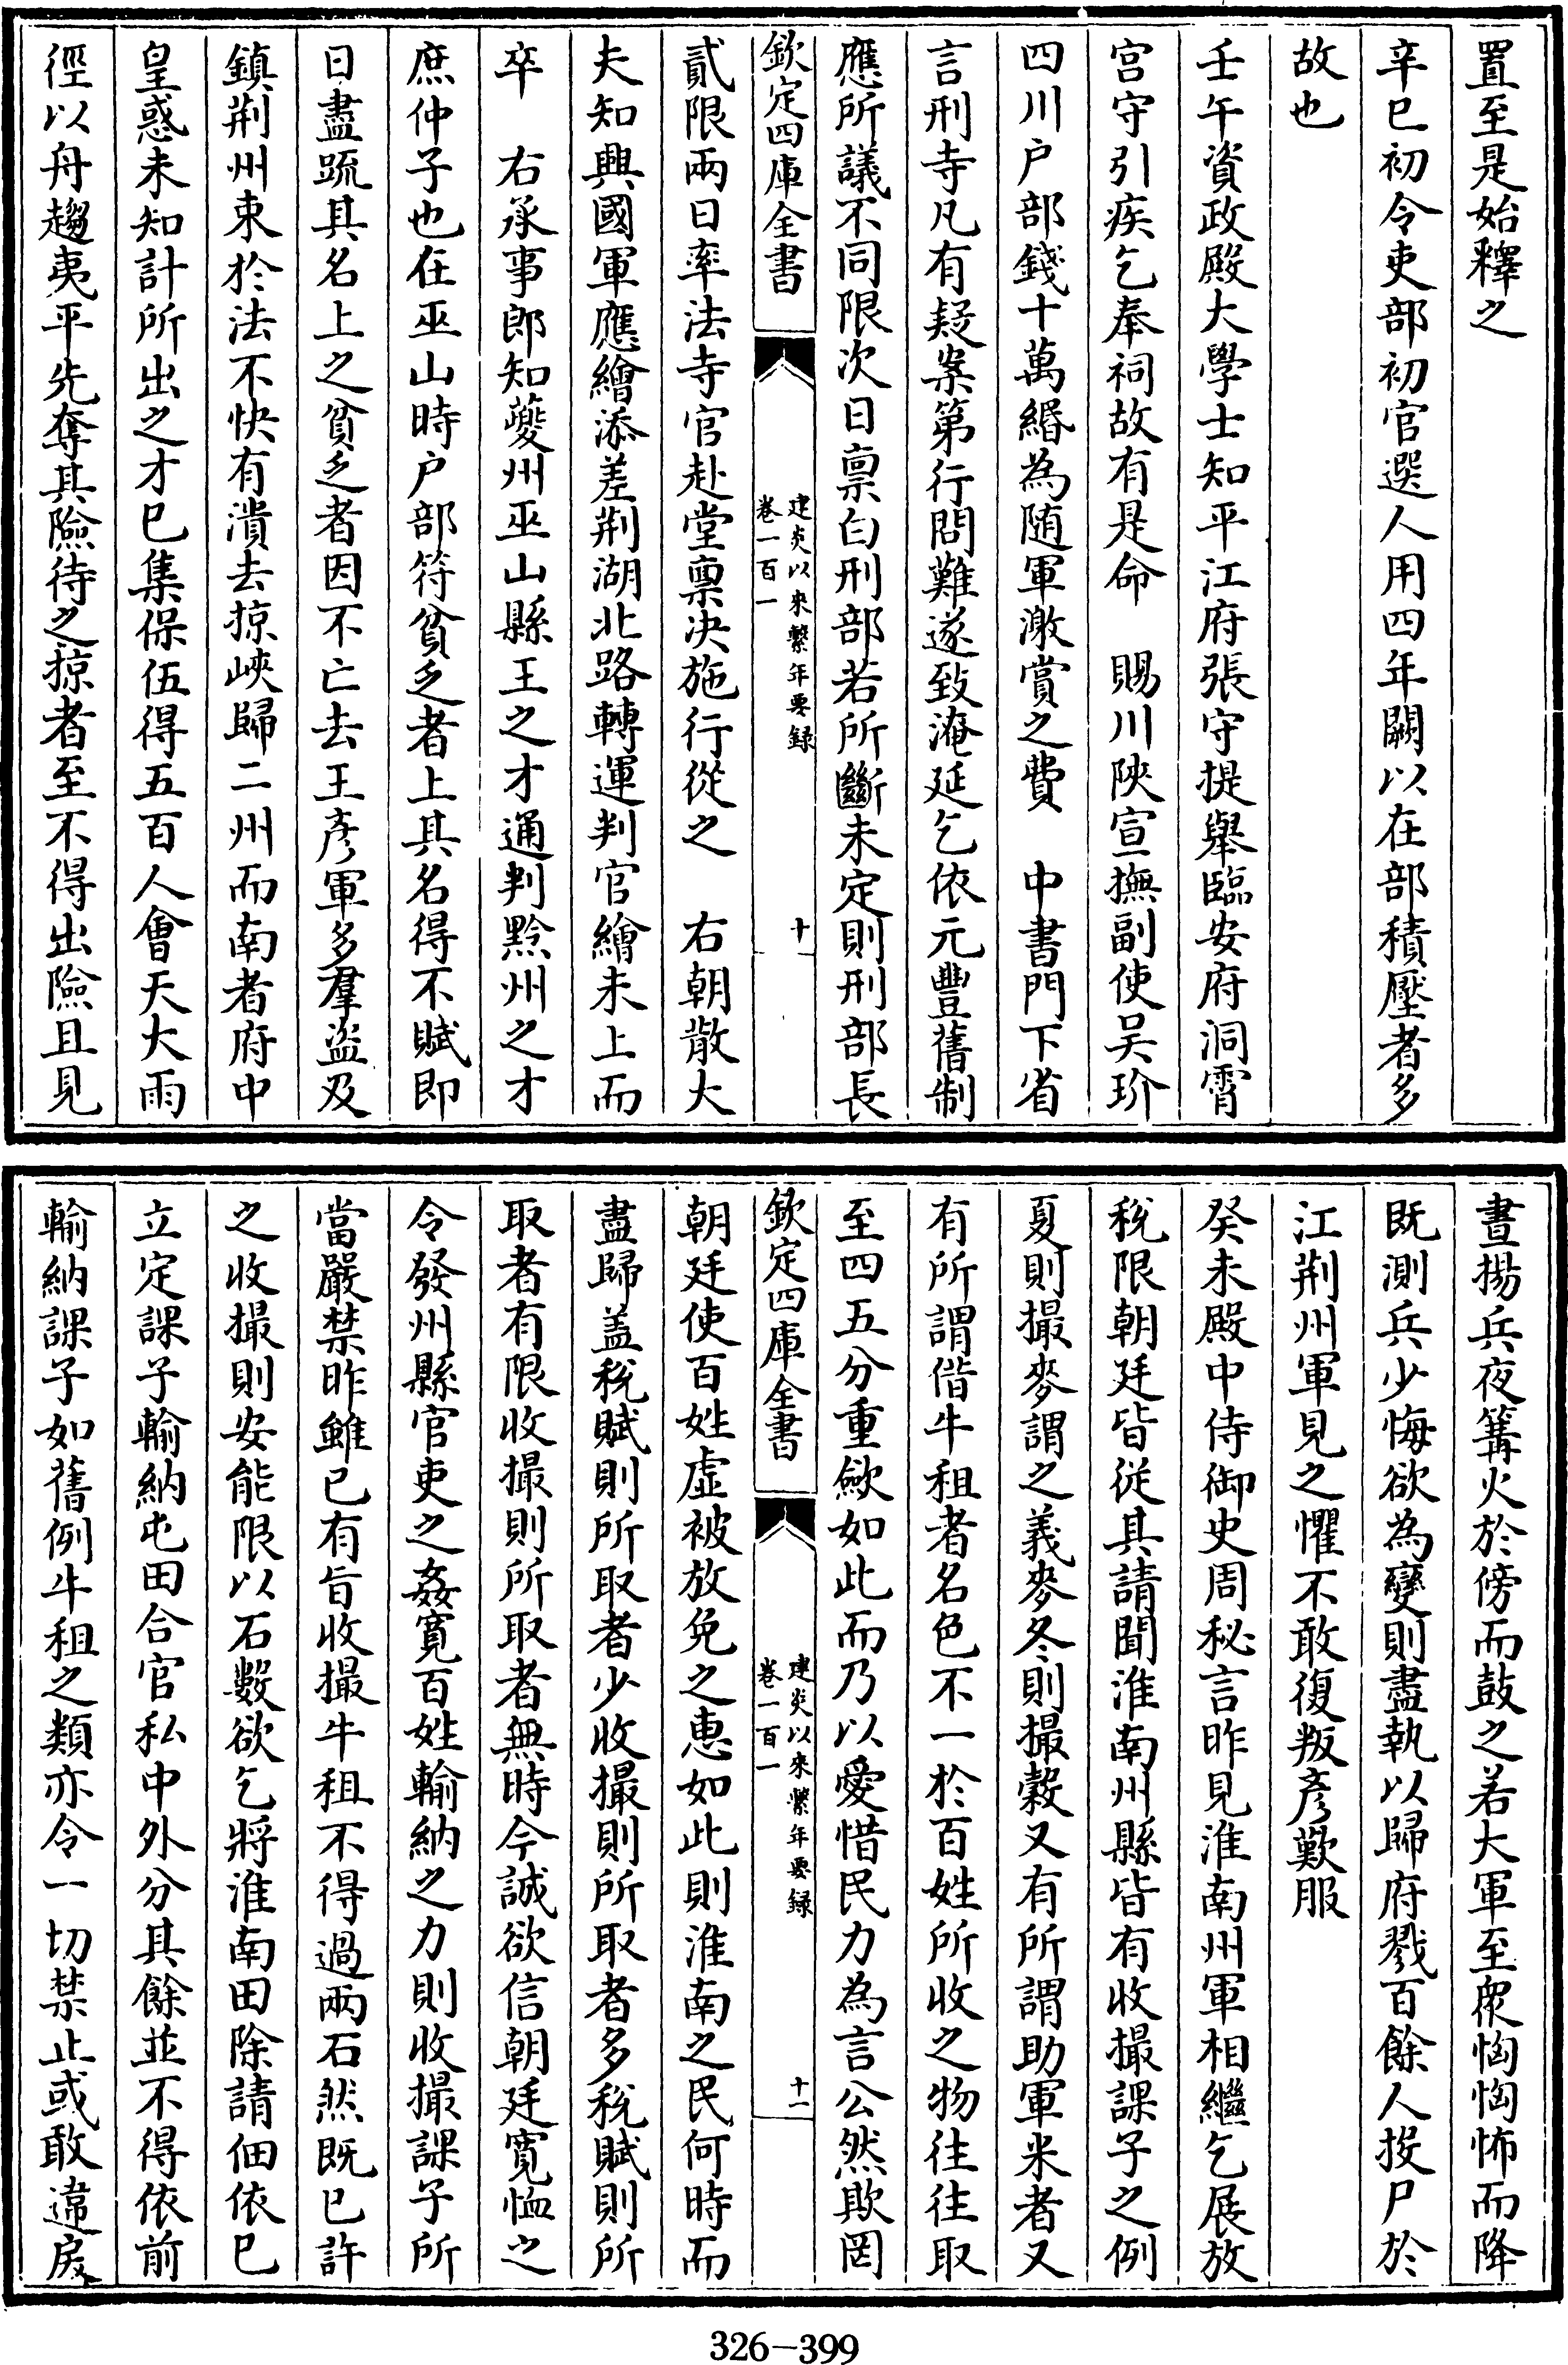 置至是始釋之
辛巳初令吏部初官選人用四年闕以在部積壓者多
故也
壬午資政殿大學士知平江府張守提舉臨安府洞霄
宫守引疾乞奉祠故有是命　賜川陜宣撫副使吴玠
四川户部錢十萬緡為随軍激賞之費　中書門下省
言刑寺凡有疑案第行問難遂致淹延乞依元豐舊制
應所議不同限次日禀白刑部若所斷未定則刑部長
欽定四庫全書
建炎以來繫年要録
卷一百一
十
貳限兩日率法寺官赴堂禀决施行從之　右朝散大
夫知興國軍應繪添差荆湖北路轉運判官繪未上而
卒　右承事郎知夔州巫山縣王之才通判黔州之才
庶仲子也在巫山時户部符貧乏者上其名得不賦即
日盡疏其名上之貧乏者因不亡去王彦軍多羣盜及
鎮荆州束於法不快有潰去掠峽歸二州而南者府中
皇惑未知計所出之才已集保伍得五百人㑹天大雨
徑以舟趨夷平先奪其險待之掠者至不得出險且見
晝揚兵夜篝火於傍而鼓之若大軍至衆恟恟怖而降
既測兵少悔欲為變則盡執以歸府戮百餘人投尸於
江荆州軍見之懼不敢復叛彦歎服
癸未殿中侍御史周秘言昨見淮南州軍相繼乞展放
税限朝廷皆從其請聞淮南州縣皆有收撮課子之例
夏則撮麥謂之義麥冬則撮穀又有所謂助軍米者又
有所謂偕牛租者名色不一於百姓所收之物往往取
至四五分重斂如此而乃以愛惜民力為言公然欺罔
欽定四庫全書
建炎以來繫年要録
卷一百一
十一
朝廷使百姓虚被放免之惠如此則淮南之民何時而
盡歸盖税賦則所取者少收撮則所取者多税賦則所
取者有限收撮則所取者無時今誠欲信朝廷寛恤之
令發州縣官吏之姦寛百姓輸納之力則收撮課子所
當嚴禁昨雖已有旨收撮牛租不得過兩石然既已許
之收撮則安能限以石數欲乞將淮南田除請佃依已
立定課子輸納屯田合官私中外分其餘並不得依前
輸納課子如舊例牛租之類亦令一切禁止或敢違戾
326-399